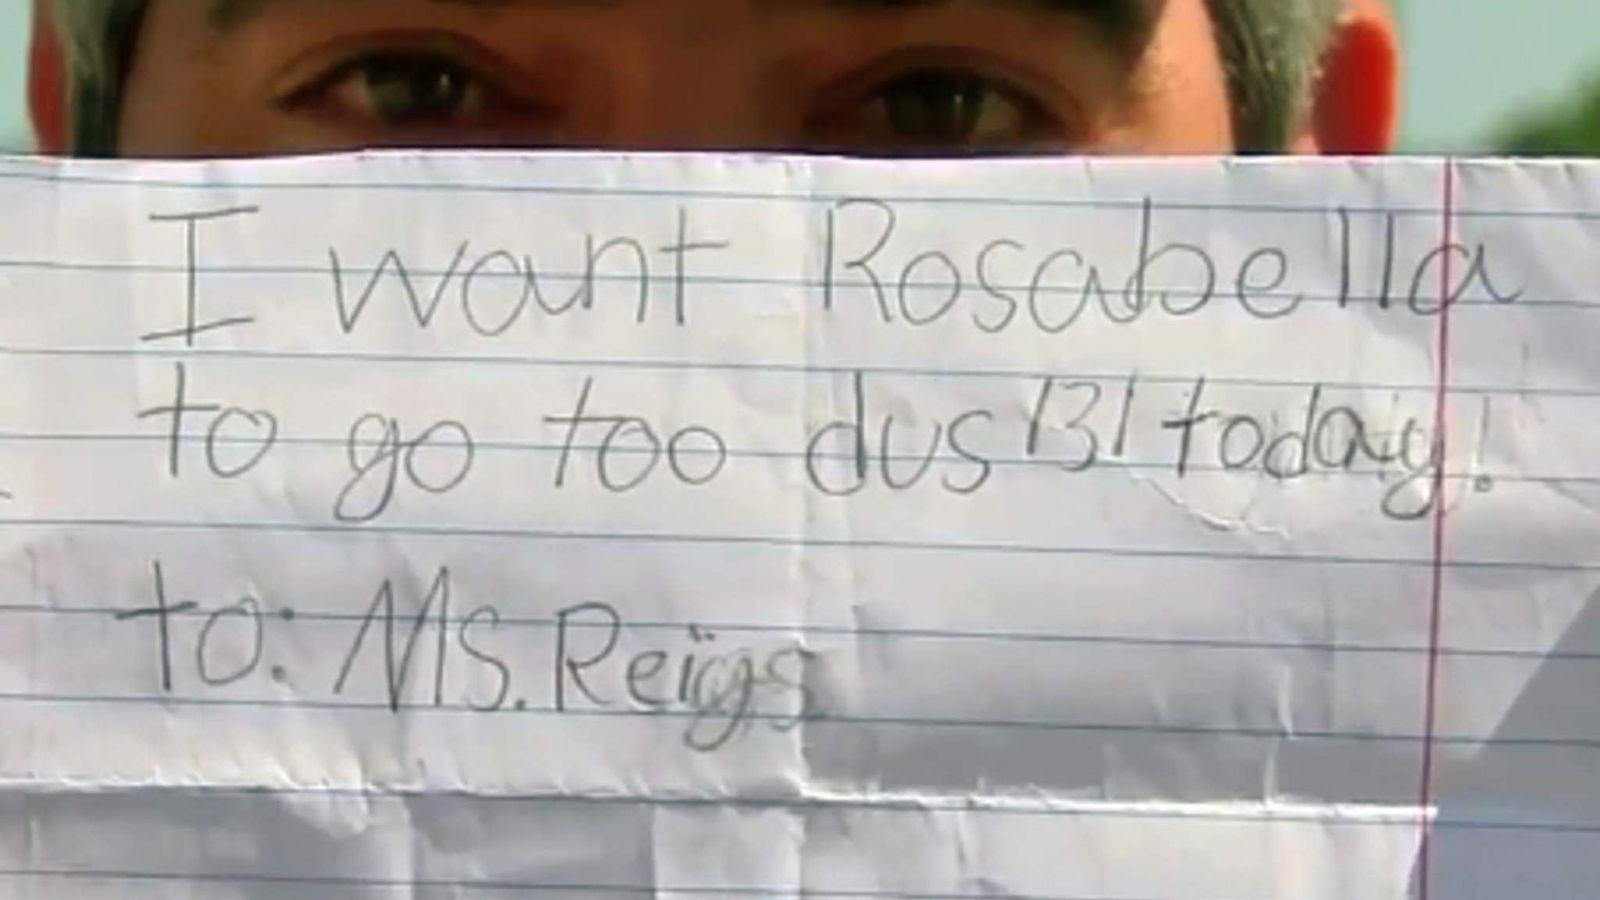 I want Rosabella
to go too dus 131 today!
to: Ms. Reigs